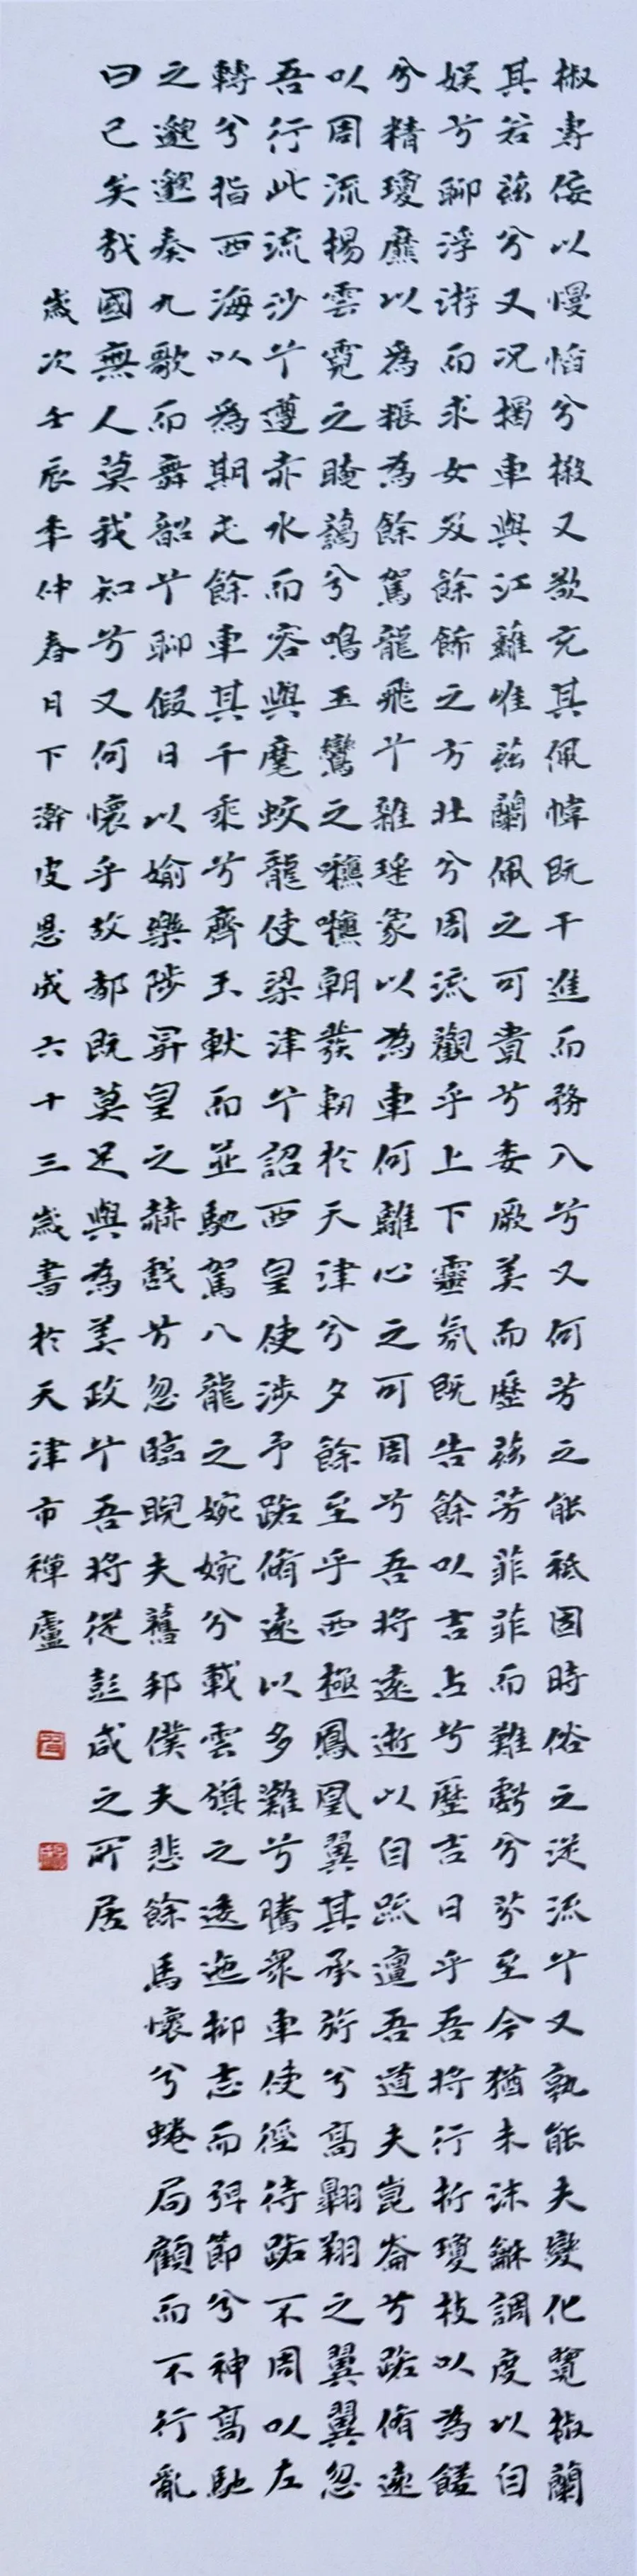 椒專佞以慢慆兮樧又欲充其佩幃既干進而務入兮又何芳之能祗固時俗之從流兮又孰能夫變化覽椒蘭
其若茲兮又況揭車與江離惟茲蘭佩之可貴兮委厥美而歷茲芳菲菲而難虧兮芬至今猶未沬龢調度以自
娛兮聊浮游而求女及餘飾之方壯兮周流觀乎上下靈氛既告餘以吉占兮歷吉日乎吾將行折瓊枝以為饈
兮精瓊爢以為粻為餘駕龍飛兮雜瑤象以為車何離心之可周兮吾將遠逝以自疏邅吾道夫崑崙兮路脩遠
以周流揚雲霓之晻藹兮鳴玉鸞之噍噍朝發軔於天津兮夕餘至乎西極鳳凰翼其承旂兮高翱翔之翼翼忽
吾行此流沙兮遵赤水而容與麾蛟龍使梁津兮詔西皇使涉予路脩遠以多難兮騰衆車使徑待路不周以左
轉兮指西海以為期屯餘車其千乘兮齊玉軑而並馳駕八龍之婉婉兮載雲旗之逶迤抑志而弭節兮神高馳
之邈邈奏九歌而舞韶兮聊假日以媮樂陟昇皇之赫戲兮忽臨睨夫舊邦僕夫悲餘馬懷兮蜷局顧而不行亂
曰已矣哉國無人莫我知兮又何懷乎故都既莫足與為美政兮吾將從彭咸之所居
歲次壬辰年仲春日下瀚皮恩成六十三歲書於天津市禪廬